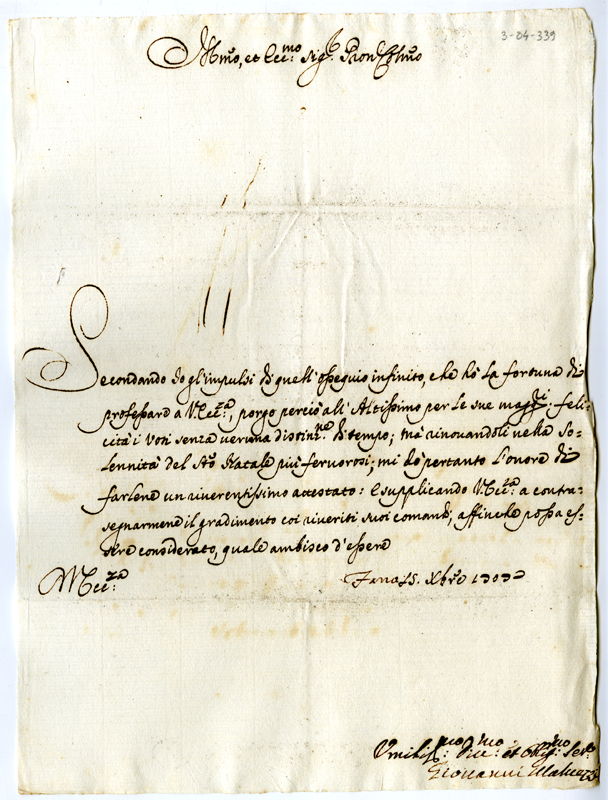 3-04-339
Illmo, et Ecc:mo Sig:r Pron Colmo
Secondando Io gl'impulsi di quell'ossequio infinito, che hò la fortuna di
professare a V.Ecc:za, porgo perciò all'Altissimo per le sue magg:ri feli-
cità i Voti senza veruna distin:ne di tempo; mà rinovandoli nella So-
lennità del Sto Natale più fervorosi; mi dò pertanto l'onore di
farlene un riverentissimo attestato: e supplicando V.Ecc:za a contra-
segnarmene il gradimento coi riveriti suoi comandi, affinche possa es-
sere considerato, quale ambisco d'essere
V.Ecc:za
Fano 15. Xbre
Umiliss:mo Div:mo et Obbl:mo Serre
Giovanni